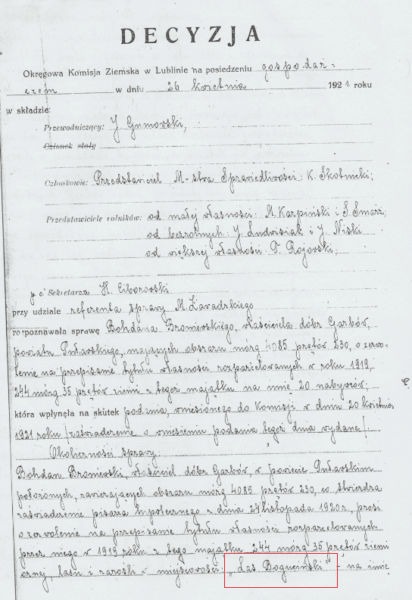 DECYZJA
Okręgowa Komisja Ziemska w Lublinie na posiedzeniu gospodar-
czem w dniu 26 kwietnia 1921 roku
w składzie:
Przewodniczący: J. Gumowski,
Członek stały
Członkowie: Przedstawiciel M-stwa Sprawiedliwości: K. Skolnicki;
Przedstawiciele rolników: od małej własności: M. Karpiński i S. Smarz,
od bezrolnych: J. Ludwisiak i J. Niski
od większej własności: P. Rojowski;
p.o. Sekretarza H. Ciborowski
przy udziale referenta sprawy M. Zawadzkiego
rozpoznawała sprawę Bohdana Broniewskiego, właściciela dóbr Garbów,
powiatu Puławskiego, mających obszaru mórg 4085 prętów 230, o zezwo-
lenie na przepisanie tytułu własności rozparcelowanych w roku 1919,
244 mórg 35 prętów ziemi z tegoż majątku na imię 20 nabywców;
która wpłynęła na skutek podania, wniesionego do Komisji w dniu 20 kwietnia
1921 roku /zaświadczenie o wniesieniu podania tegoż dnia wydane/.
Okoliczności sprawy.
Bohdan Broniewski, właściciel dóbr Garbów, w powiecie Puławskim
położonych, zawierających obszaru mórg 4085 prętów 230, co stwierdza
zaświadczenie pisarza hipotecznego z dnia 24 listopada 1920 r., prosi
o zezwolenie na przepisanie tytułu własności rozparcelowanych
przez niego w 1919 roku z tego majątku 244 mórg 35 prętów ziemi
ornej, lasu i zarośli - miejscowości: „Las Bogucinski" na imię